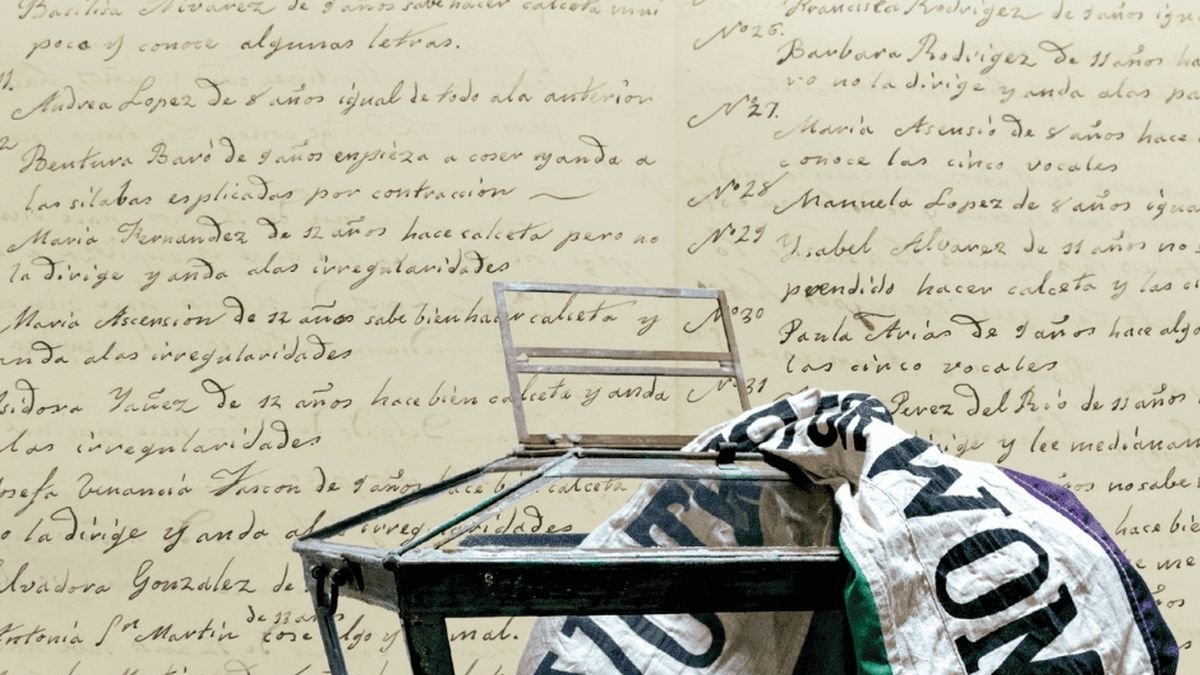 Basilisa Alvarez de 9 años sabe hacer calceta mui
poco y conoce algunas letras.
11.
Andrea Lopez de 8 años igual de todo ala anterior
2
Bentura Baró de 9 años enpieza a coser y anda a
las silabas esplicadas por contracción
Maria Fernandez de 12 años hace calceta pero no
la dirige y anda alas irregularidades
Maria Ascensión de 12 años sabe bien hacer calceta y
anda alas irregularidades
Isidora Yañez de 12 años hace bien calceta y anda
las irregularidades
Josefa Venancia Vascon de 9 años hace bien calceta
o la dirige y anda al irregularidades
Salvadora Gonzalez de
de 13 años
Antonia Sn Martin cose algo y mal.
Francisca Rodrigez de 9 años igu
Nº 26.
Barbara Rodrigez de 11 años ha
ro no la dirige y anda alas pa
Nº 27.
Maria Asensio de 8 años hace
conoce las cinco vocales
Nº 28
Manuela Lopez de 8 años igua
Nº 29
Ysabel Alvarez de 11 años no
prendido hacer calceta y las ci
Nº 30
Paula Arias de 9 años hace algo
las cinco vocales
Nº 31
Perez del Rio de 11 años
dirige y lee medianam
no sabe
hace bien
años
FOR WOM